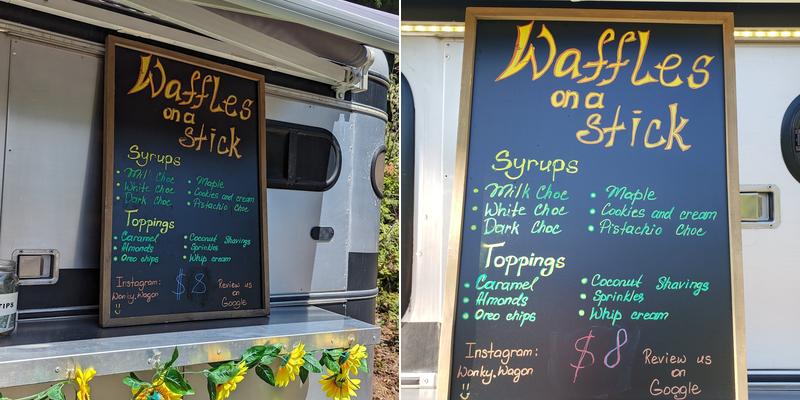 Waffles
on a
Stick
Syrups
• Milk Choc • Maple
• White Choc • Cookies and cream
• Dark Choc • Pistachio Choc
Toppings
• Caramel • Coconut Shavings
• Almonds • Sprinkles
• Oreo chips • Whip cream
Instagram:
Wonky.Wagon
$8
Review us
on
Google
TIPS
Waffles
on a
Stick
Syrups
• Milk Choc • Maple
• White Choc • Cookies and cream
• Dark Choc • Pistachio Choc
Toppings
• Caramel • Coconut Shavings
• Almonds • Sprinkles
• Oreo chips • Whip cream
Instagram:
Wonky.Wagon
$8
Review us
on
Google